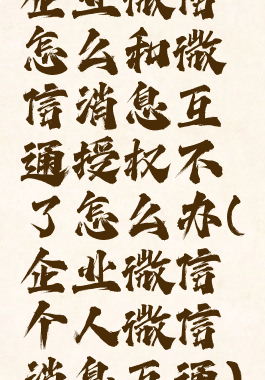 企业微信
怎么和微
信消息互
通授权不
了怎么办(
企业微信
个人微信
消息互通)